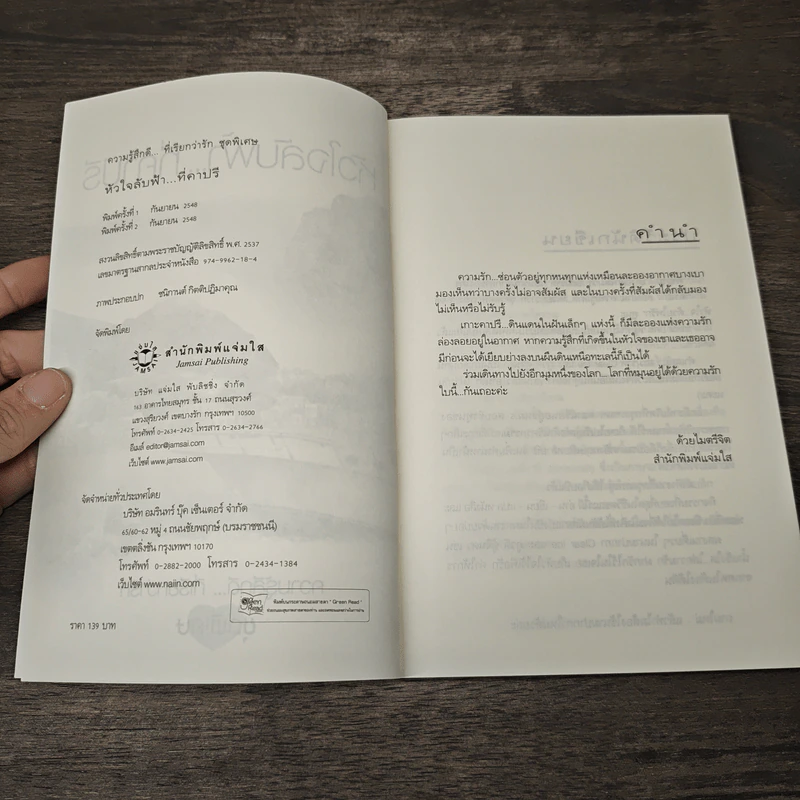 ความรู้สึกดี... ที่เรียกว่ารัก ชุดพิเศษ
หัวใจลับฟ้า...ที่คาปรี
พิมพ์ครั้งที่ 1 กันยายน 2548
พิมพ์ครั้งที่ 2 กันยายน 2548
สงวนลิขสิทธิ์ตามพระราชบัญญัติลิขสิทธิ์ พ.ศ. 2537
เลขมาตรฐานสากลประจำหนังสือ 974-9962-18-4
ภาพประกอบปก ชนิกานต์ กิตติปฏิมาคุณ
จัดพิมพ์โดย
สำนักพิมพ์แจ่มใส
Jamsai Publishing
บริษัท แจ่มใส พับลิชชิ่ง จำกัด
163 อาคารไทยสมุทร ชั้น 17 ถนนสุรวงศ์
แขวงสุริยวงศ์ เขตบางรัก กรุงเทพฯ 10500
โทรศัพท์ 0-2634-2425 โทรสาร 0-2634-2766
อีเมล์ editor@jamsai.com
เว็บไซต์ www.jamsai.com
จัดจำหน่ายทั่วประเทศโดย
บริษัท อมรินทร์ บุ๊ค เซ็นเตอร์ จำกัด
65/60-62 หมู่ 4 ถนนชัยพฤกษ์ (บรมราชชนนี)
เขตตลิ่งชัน กรุงเทพฯ 10170
โทรศัพท์ 0-2882-2000 โทรสาร 0-2434-1384
เว็บไซต์ www.naiin.com
Green Read
พิมพ์บนกระดาษถนอมสายตา "Green Read"
ราคา 139 บาท
คำนำ
ความรัก...ซ่อนตัวอยู่ทุกหนทุกแห่งเหมือนละอองอากาศบางเบา
มองเห็นทว่าบางครั้งไม่อาจสัมผัส และในบางครั้งที่สัมผัสได้กลับมอง
ไม่เห็นหรือไม่รับรู้
เกาะคาปรี...ดินแดนในฝันเล็กๆ แห่งนี้ ก็มีละอองแห่งความรัก
ล่องลอยอยู่ในอากาศ หากความรู้สึกที่เกิดขึ้นในหัวใจของเขาและเธออาจ
มีก่อนจะได้เหยียบย่างลงบนผืนดินเหนือทะเลนี้ก็เป็นได้
ร่วมเดินทางไปยังอีกมุมหนึ่งของโลก...โลกที่หมุนอยู่ได้ด้วยความรัก
ใบนี้...กันเถอะค่ะ
ด้วยไมตรีจิต
สำนักพิมพ์แจ่มใส